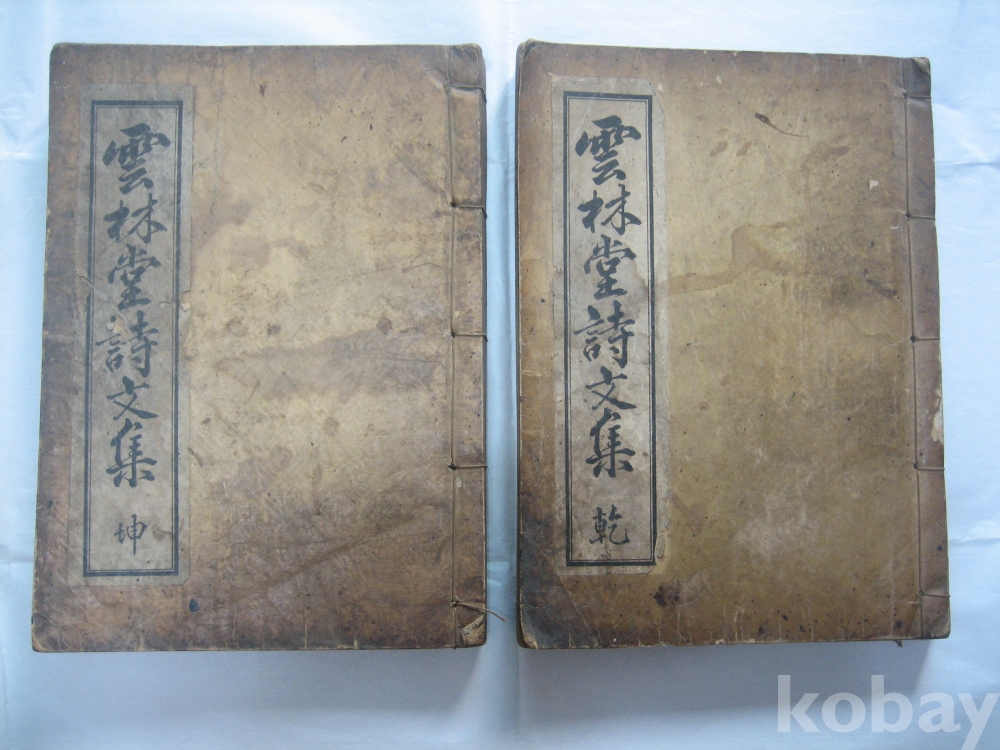 雲林堂詩文集 乾
雲林堂詩文集 坤
kobay